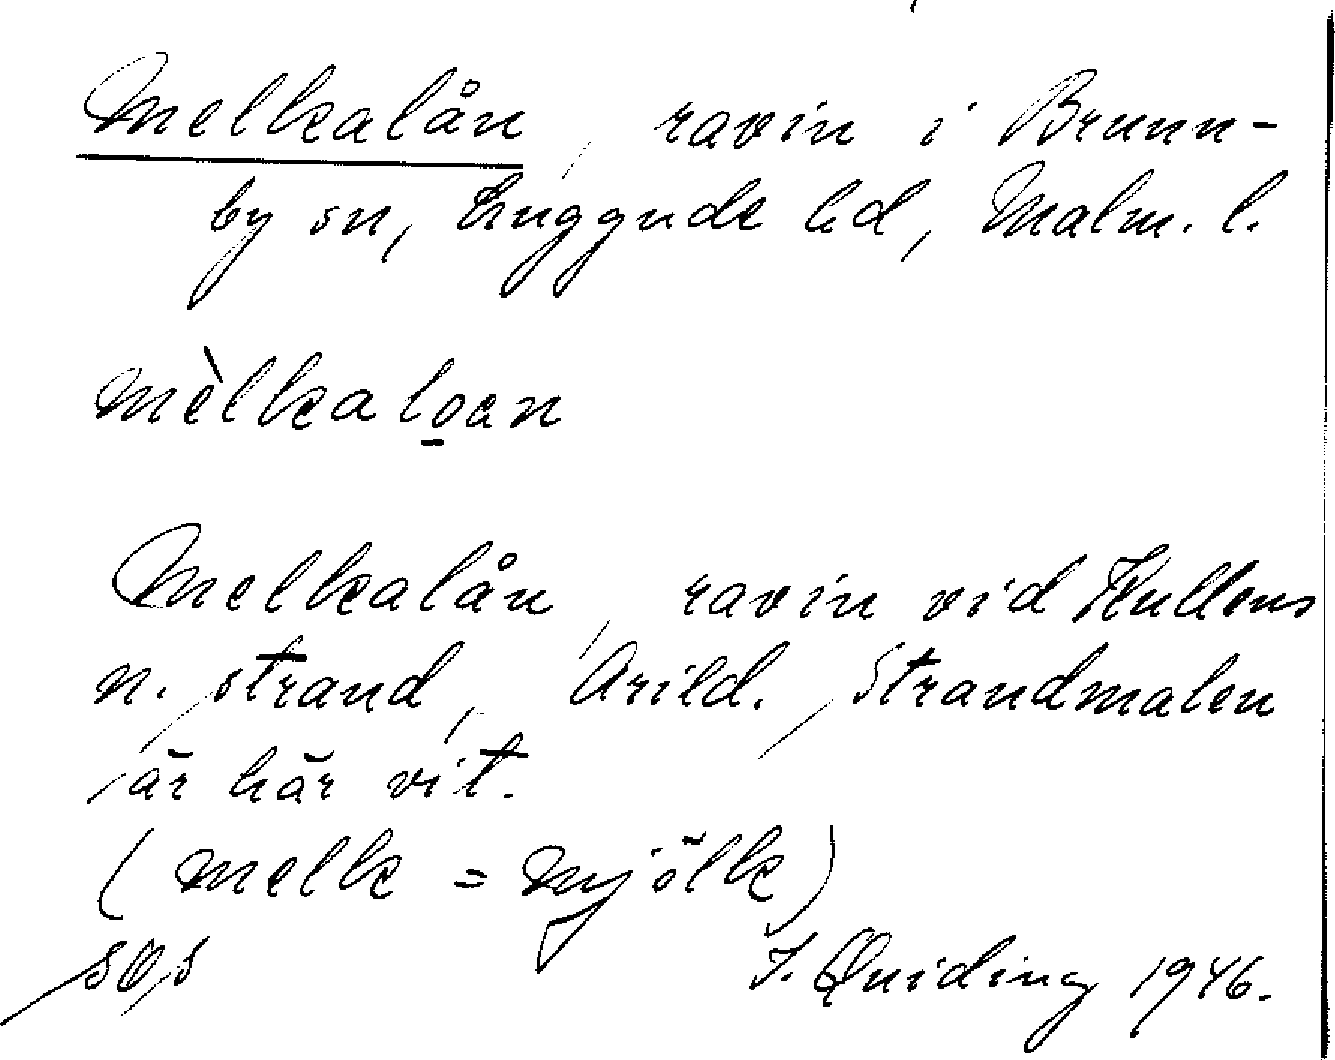 Melkalån, ravin i Brunn-
by sn, Luggude hd, Malm. l.
mèlkalo̲an
Melkalån, ravin vid Kullens
n. strand, Arild. Strandmalen
är här vit.
(melk = mjölk)
I. Quiding 1946.